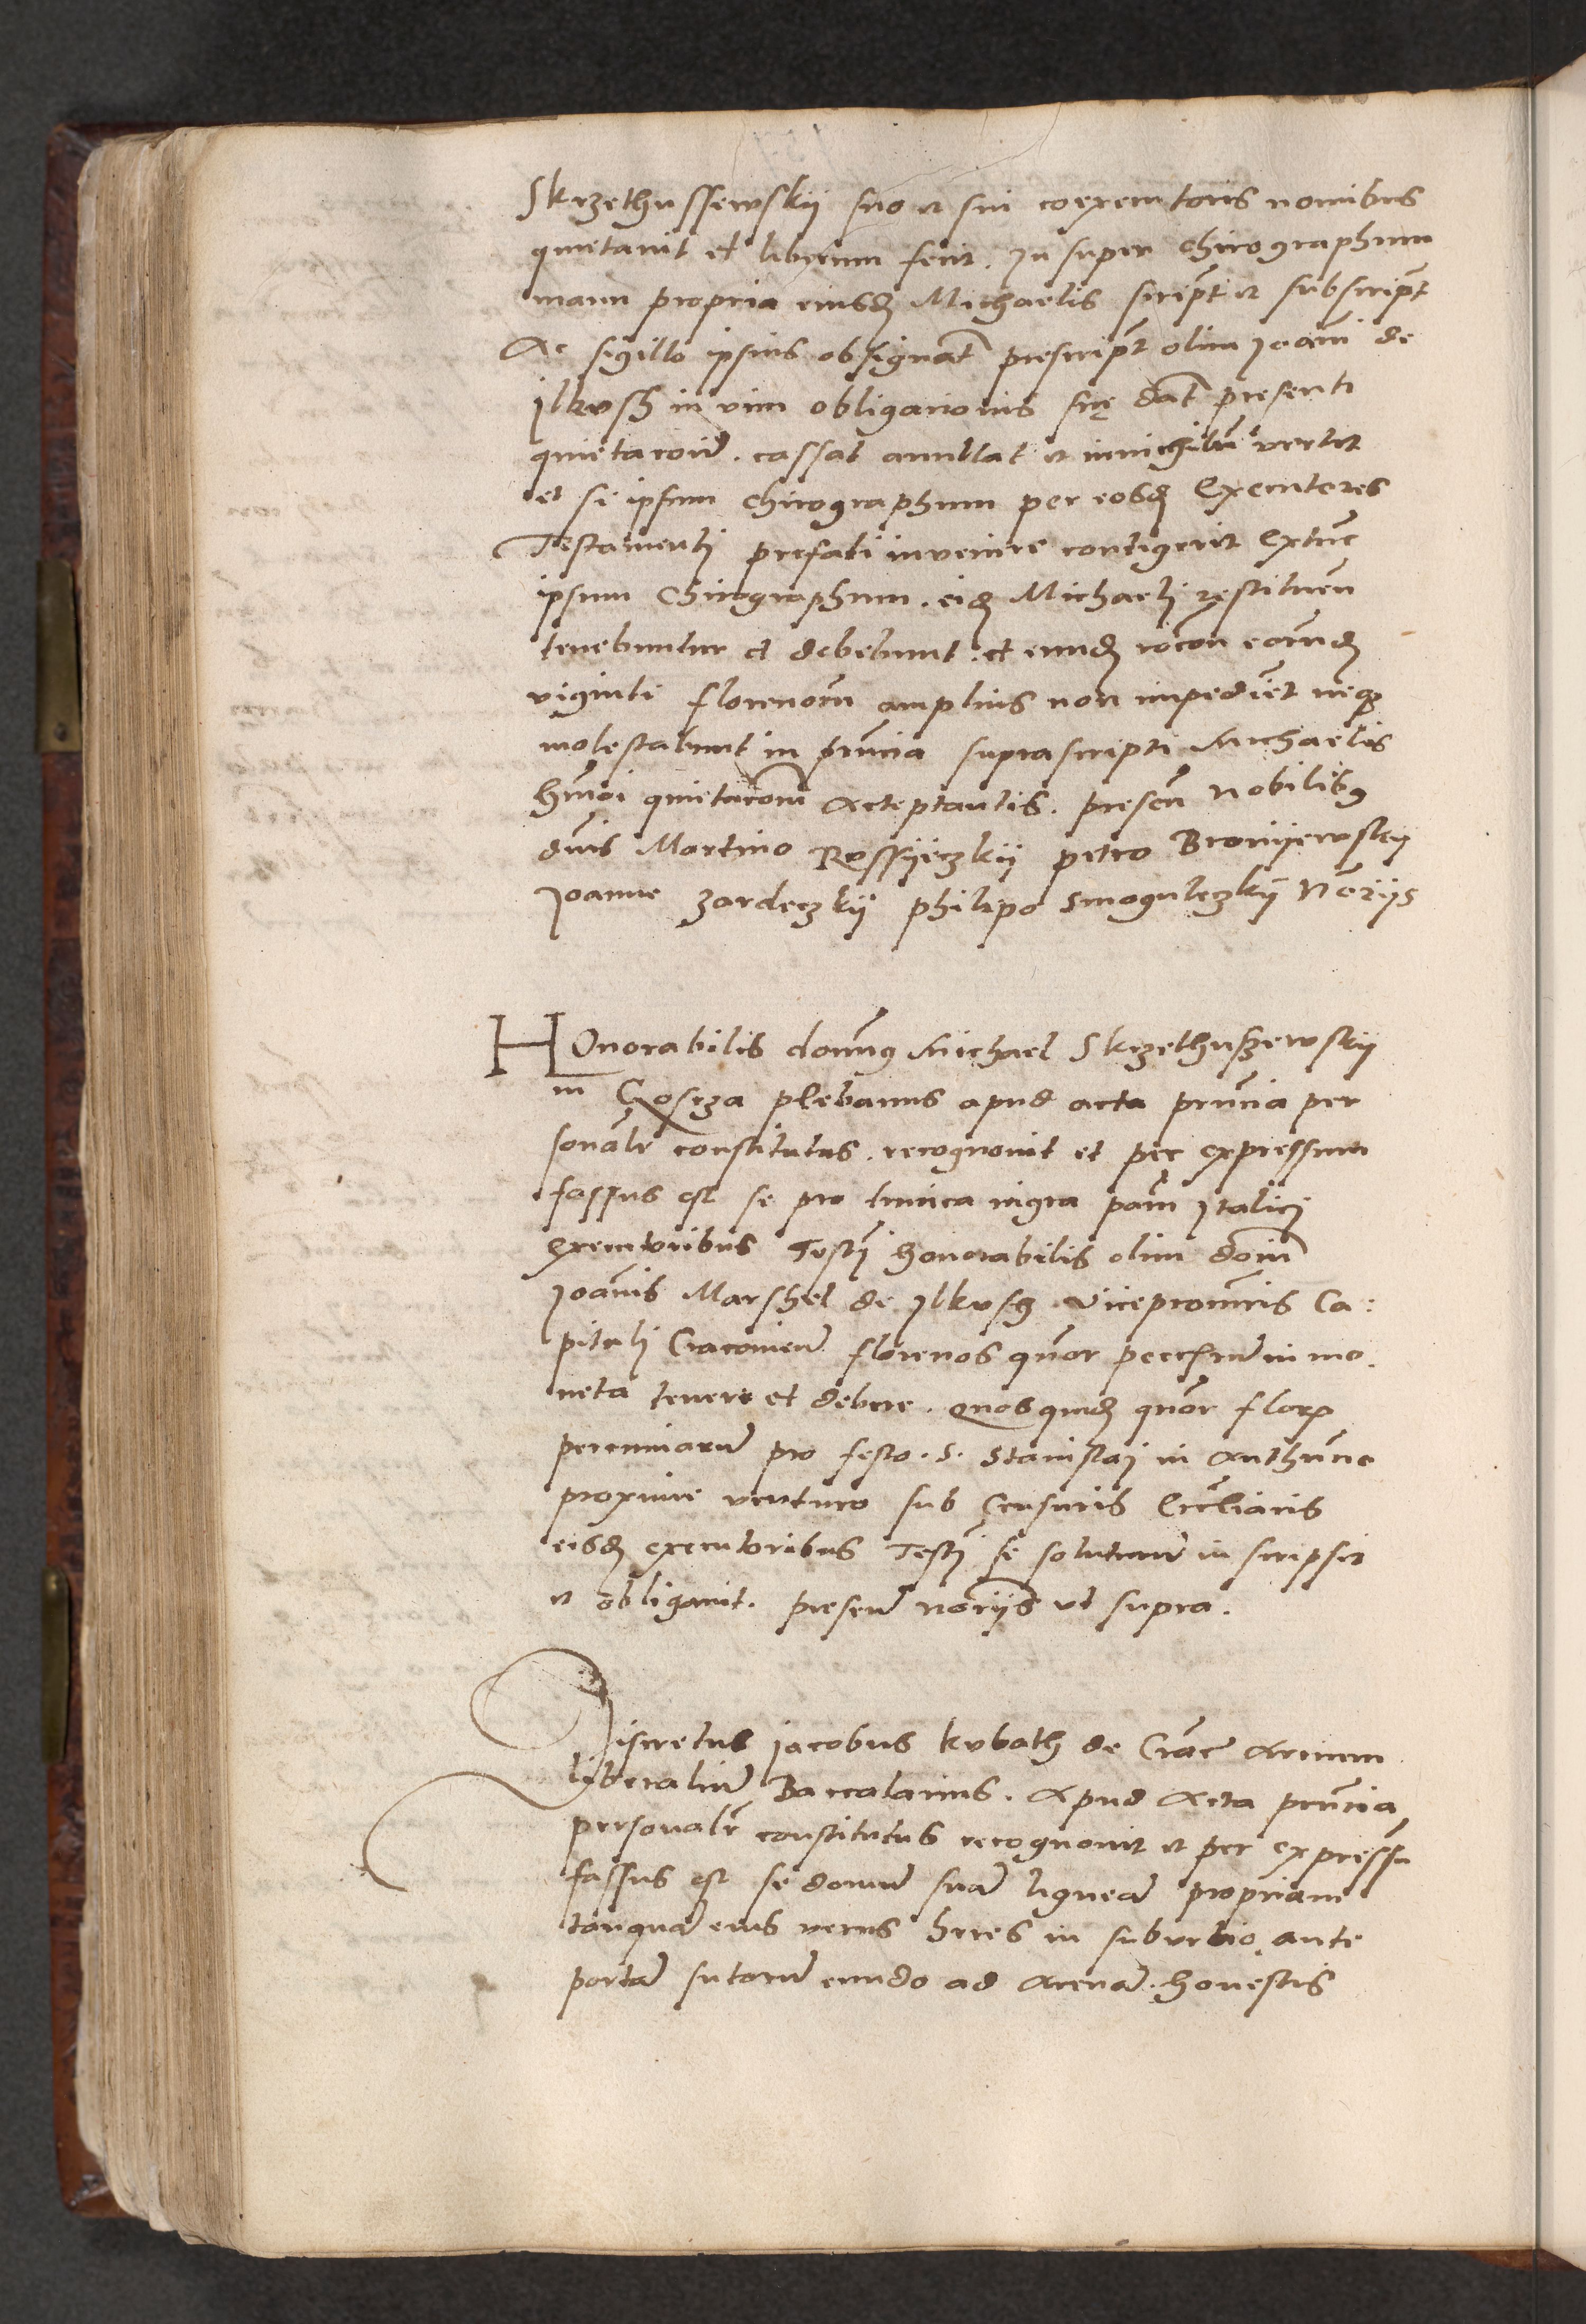 Skrzethussewskij suo et sui coexecutoris nomibus
quietavit et liberum fecit. In super chirographum
manu propria eiusdem Michaelis script et subscript
Ac sigillo ipsius obsignat prescript olim Joāni de
Ilkusch in vim obligacionis suę dat presenti
quietacoīe. cassat annullat et in nichilū vertit
et si ipsum chirographum per eosdem Executores
Testamenti prefati invenire contigerit Extunc
ipsum Chirographum. eidem Michaeli restituen
tenebuntur et debebunt. et eundem rōcon eorundem
viginti florenorum amplius non impediēt neque
molestabunt in pn̄cia suprascripti Michaelis
hm̄oi quietacōm acceptantis. presen Nobilibus
dn̄is Martino Rossijeczkij petro Bronijewskij
Joanne Zardeczkij philipo Smoguleczkij No͞rijs
HOnorabilis domn̄us Michael Skrzethuszewskij
in Goscza plebanus apud acta pn̄cia per
sonalr constitutus. recognovit et per expressum
fassus est se pro tunica nigra pan̄i Italici
executoribus Testi honorabilis olim dom̄
Joānis Marschel de Ilkusch viceprocur̄is Ca:
pituli Cracovien̄ florenos qu̅or pecūiar̄ in mo
neta tenere et debere. quos quidem qu̅or flor
pecuniarū pro festo. S. Stanislai in Authūno
proxime venturo sub Censuris Ecclīaicis
eisdem executoribus Testi se soluturū in scripsit
et obligavit. presen̄ no͞rijs ut supra.
Discretus Jacobus kubath de Crac̄ arcium
liberaliū Baccalarius. Apud Acta pn̄cia
personalr̄ constitutus recognovit et per expressū
fassus est se domū suā ligneā propriam
tanquā eius verus heres in suburbio ante
portā sutorū eundo ad Arenā. honestis